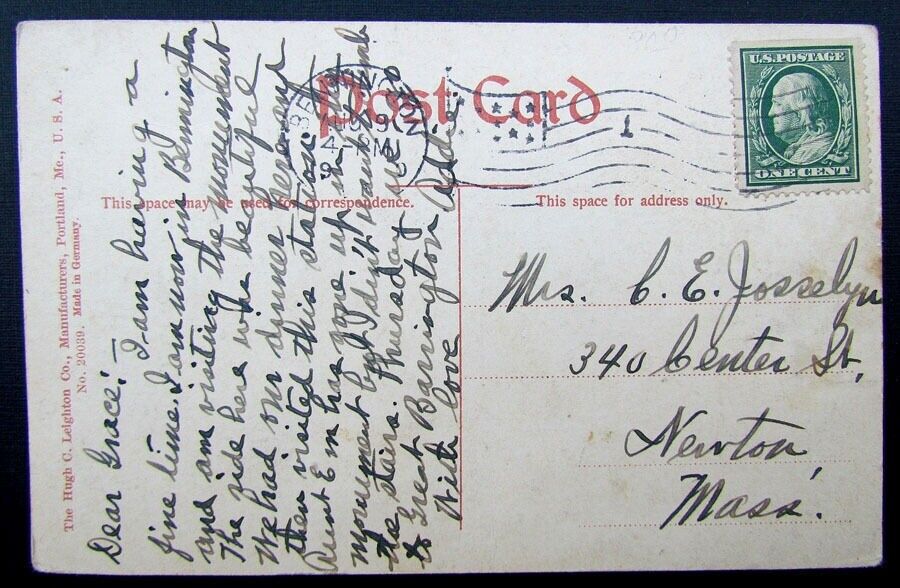 Post Card
This space may be used for correspondence.
This space for address only.
U.S. POSTAGE
ONE CENT
The Hugh C. Leighton Co., Manufacturers, Portland, Me., U. S. A.
No. 20039. Made in Germany.
Dear Grace:— I am having a
fine time. I am now in Bennington
and am visiting the monument
The ride here was beautiful
We had our dinner here and
then visited this station.
Aunt Em has gone up in the
monument but I didn't want to climb
the stairs. Thursday we go
to Great Barrington
With love Addie.
Mrs. C. E. Josselyn
340 Center St,
Newton
Mass.